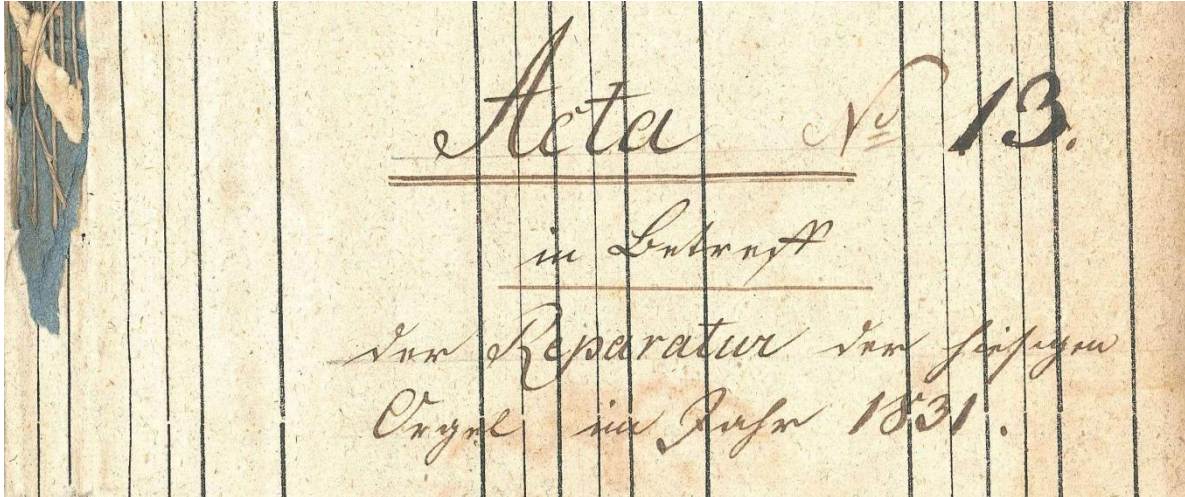 Acta No 13.
in Betreff
der Reparatur der hiesigen
Orgel im Jahr 1831.